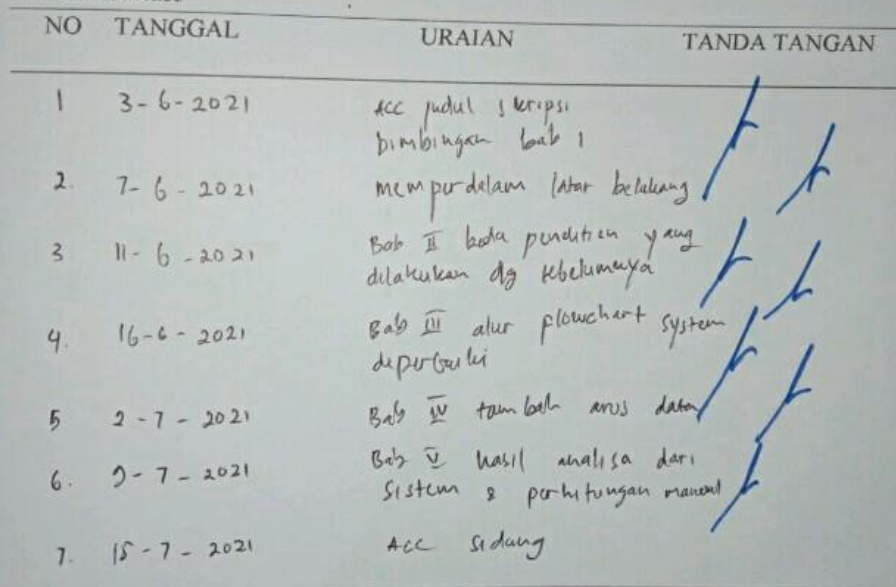 NO TANGGAL URAIAN TANDA TANGAN
1 3-6-2021 Acc judul skripsi
bimbingan bab 1
2. 7-6-2021 memperdalam latar belakang
3 11-6-2021 Bab II beda penelitian yang
dilakukan dg sebelumnya
4. 16-6-2021 Bab III alur flowchart system
diperbaiki
5 2-7-2021 Bab IV tambah arus data
6. 9-7-2021 Bab V hasil analisa dari
sistem & perhitungan manual
7. 15-7-2021 Acc sidang